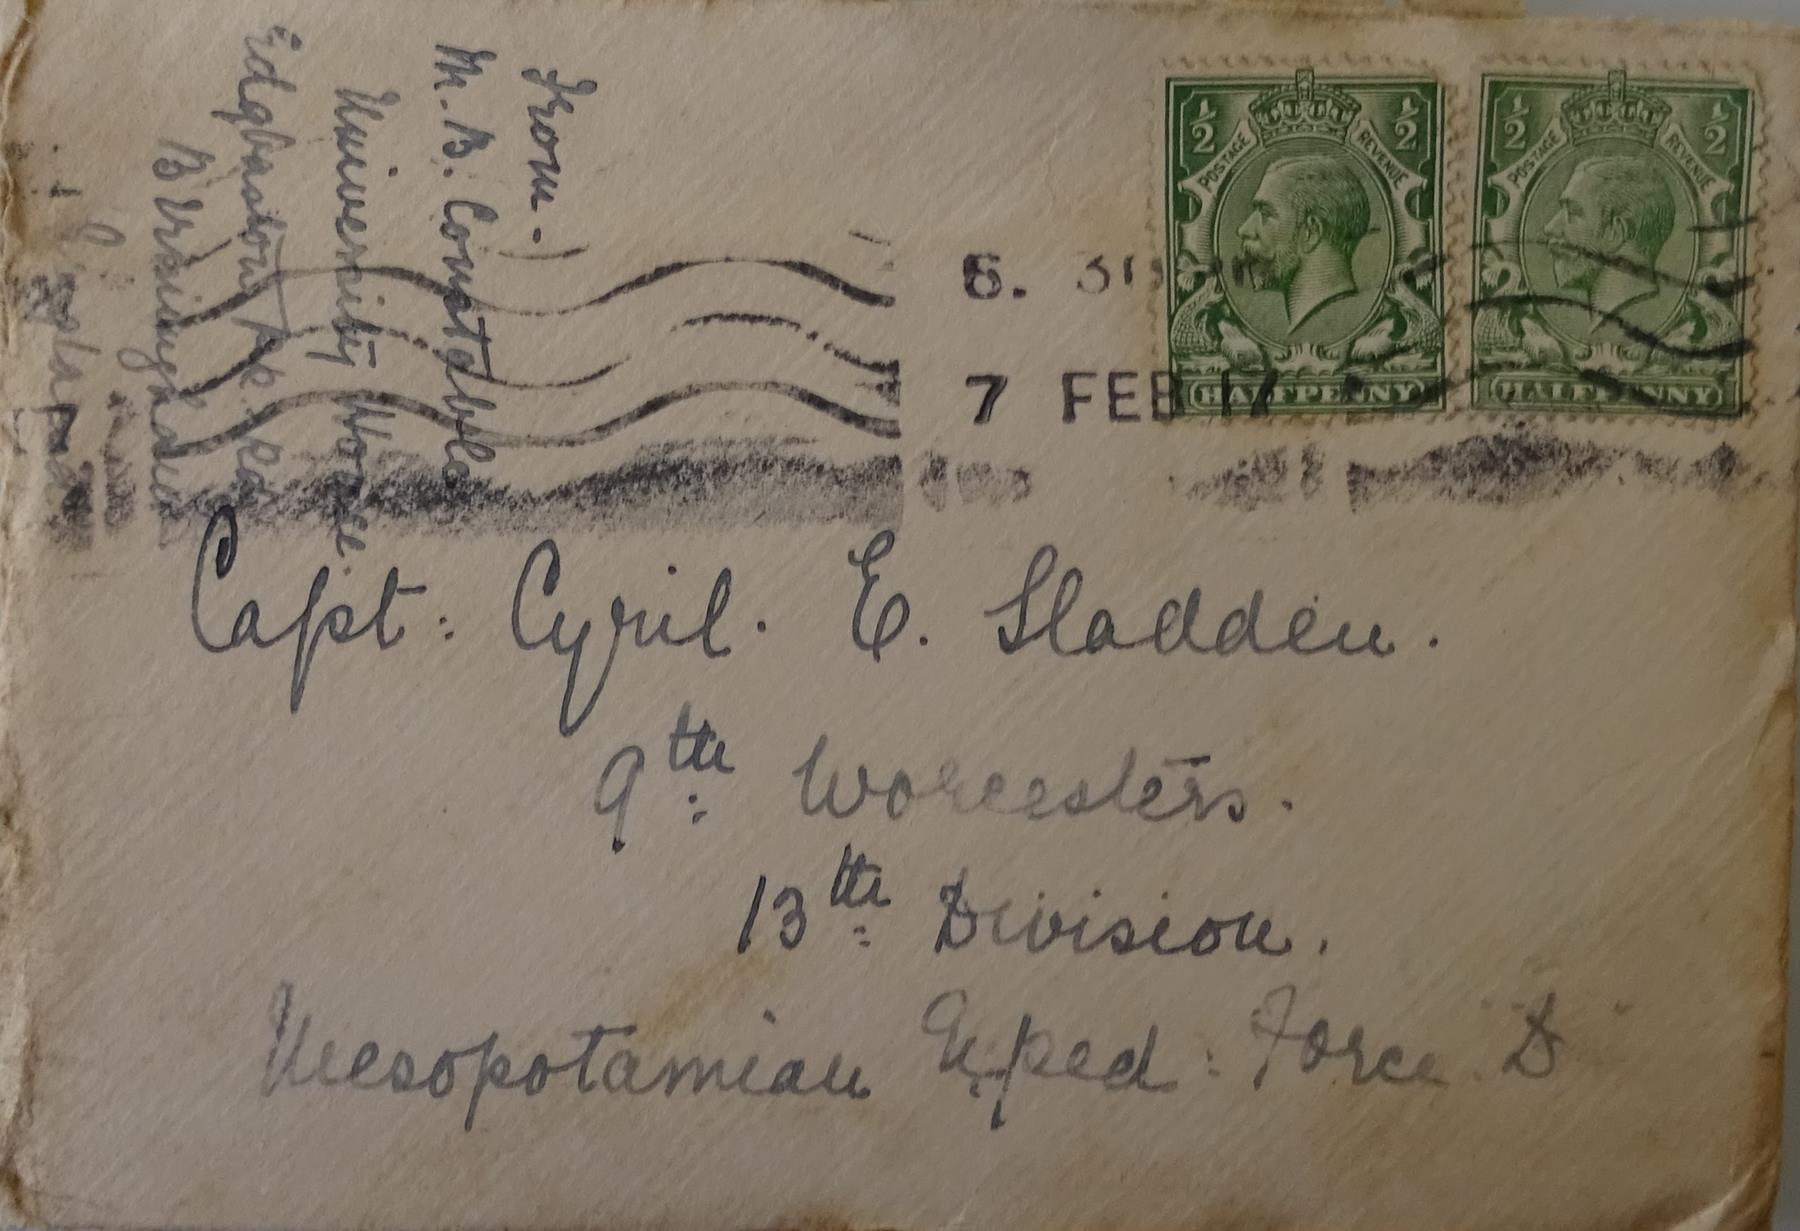 From.
M. B. Constable
University House
Edgbaston Pk. Rd.
Birmingham
England
6. 30
7 FEB 17
½ ½
POSTAGE REVENUE
HALFPENNY
½ ½
POSTAGE REVENUE
HALFPENNY
Capt: Cyril. E. Sladden.
9th Worcesters.
13th Division.
Mesopotamian Exped: Force "D"